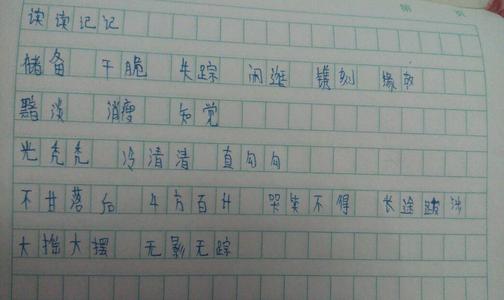 第 页
读读记记
储备 干脆 失踪 闲逛 镌刻 缘故
黯淡 消瘦 知觉
光秃秃 冷清清 直勾勾
不甘落后 千方百计 哭笑不得 长途跋涉
大摇大摆 无影无踪